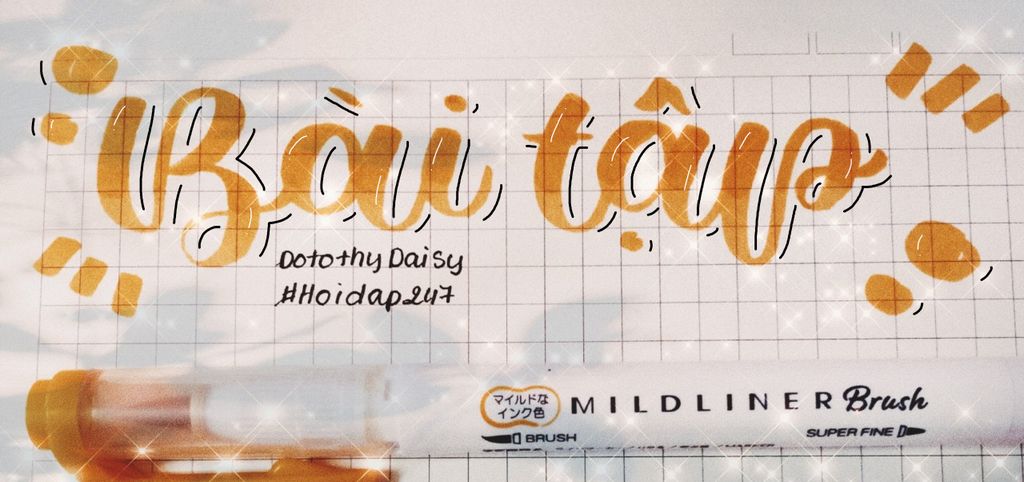 Bài tập
DotothyDaisy
#Hoidap247
マイルドな
インク色
MILDLINER Brush
BRUSH
SUPER FINE